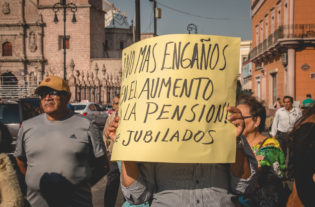 ¡NO MAS ENGAÑOS
EN EL AUMENTO
A LA PENSION!
JUBILADOS